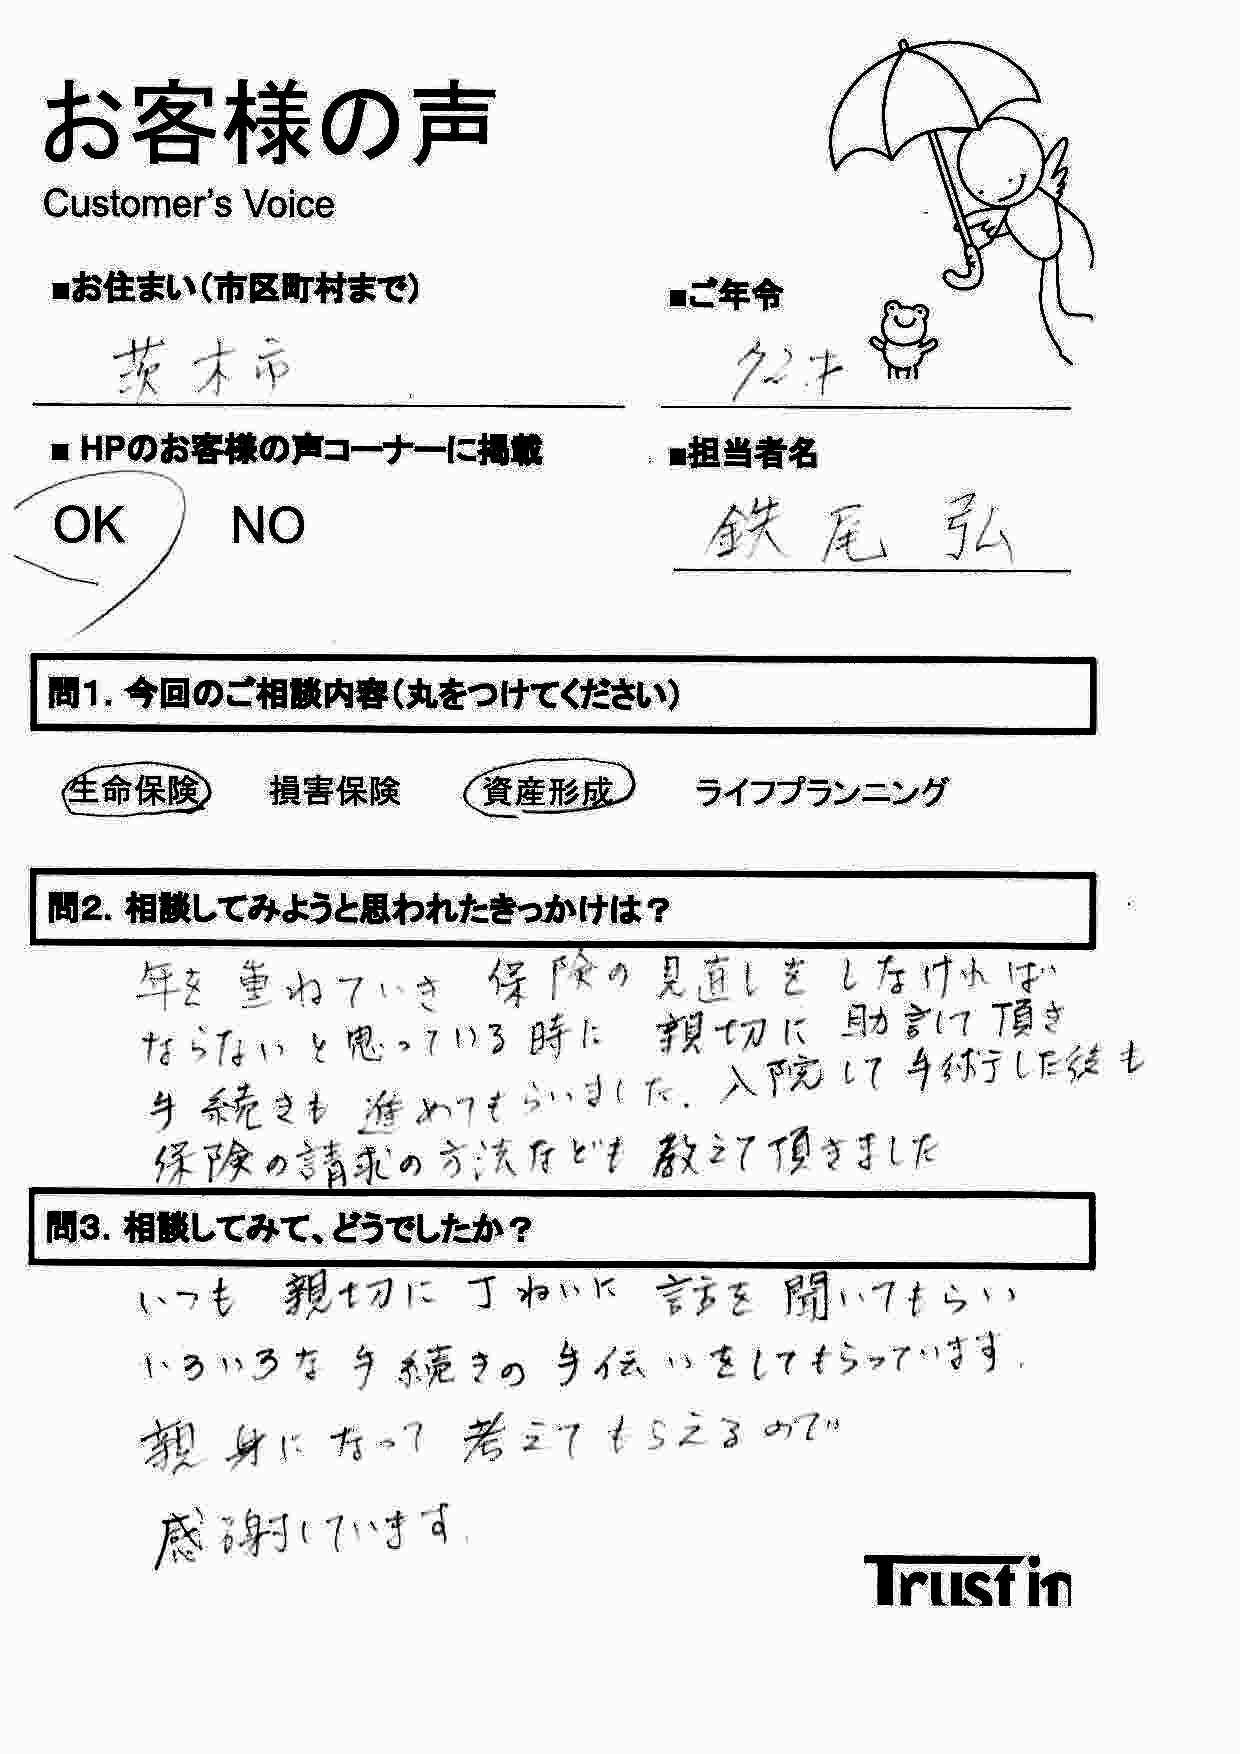 お客様の声
Customer's Voice
■お住まい(市区町村まで)
■ご年令
茨木市
72才
■HPのお客様の声コーナーに掲載
■担当者名
OK NO
鉄尾 弘
問1. 今回のご相談内容(丸をつけてください)
生命保険 損害保険 資産形成 ライフプランニング
問2. 相談してみようと思われたきっかけは?
年を重ねていき 保険の見直しをしなければ
ならないと思っている時に 親切に助言して頂き
手続きも進めてもらいました. 入院して手術した後も
保険の請求の方法なども教えて頂きました
問3. 相談してみて、どうでしたか?
いつも 親切に丁ねいに 話を聞いてもらい
いろいろな手続きの手伝いをしてもらっています.
親身になって考えてもらえるので
感謝しています.
Trust in